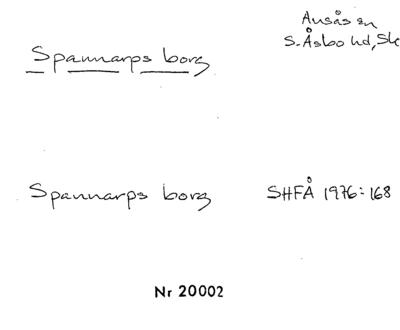 Ausås sn
S. Åsbo hd, Sk
Spannarps borg
Spannarps borg SHFÅ 1976:168
Nr 20002